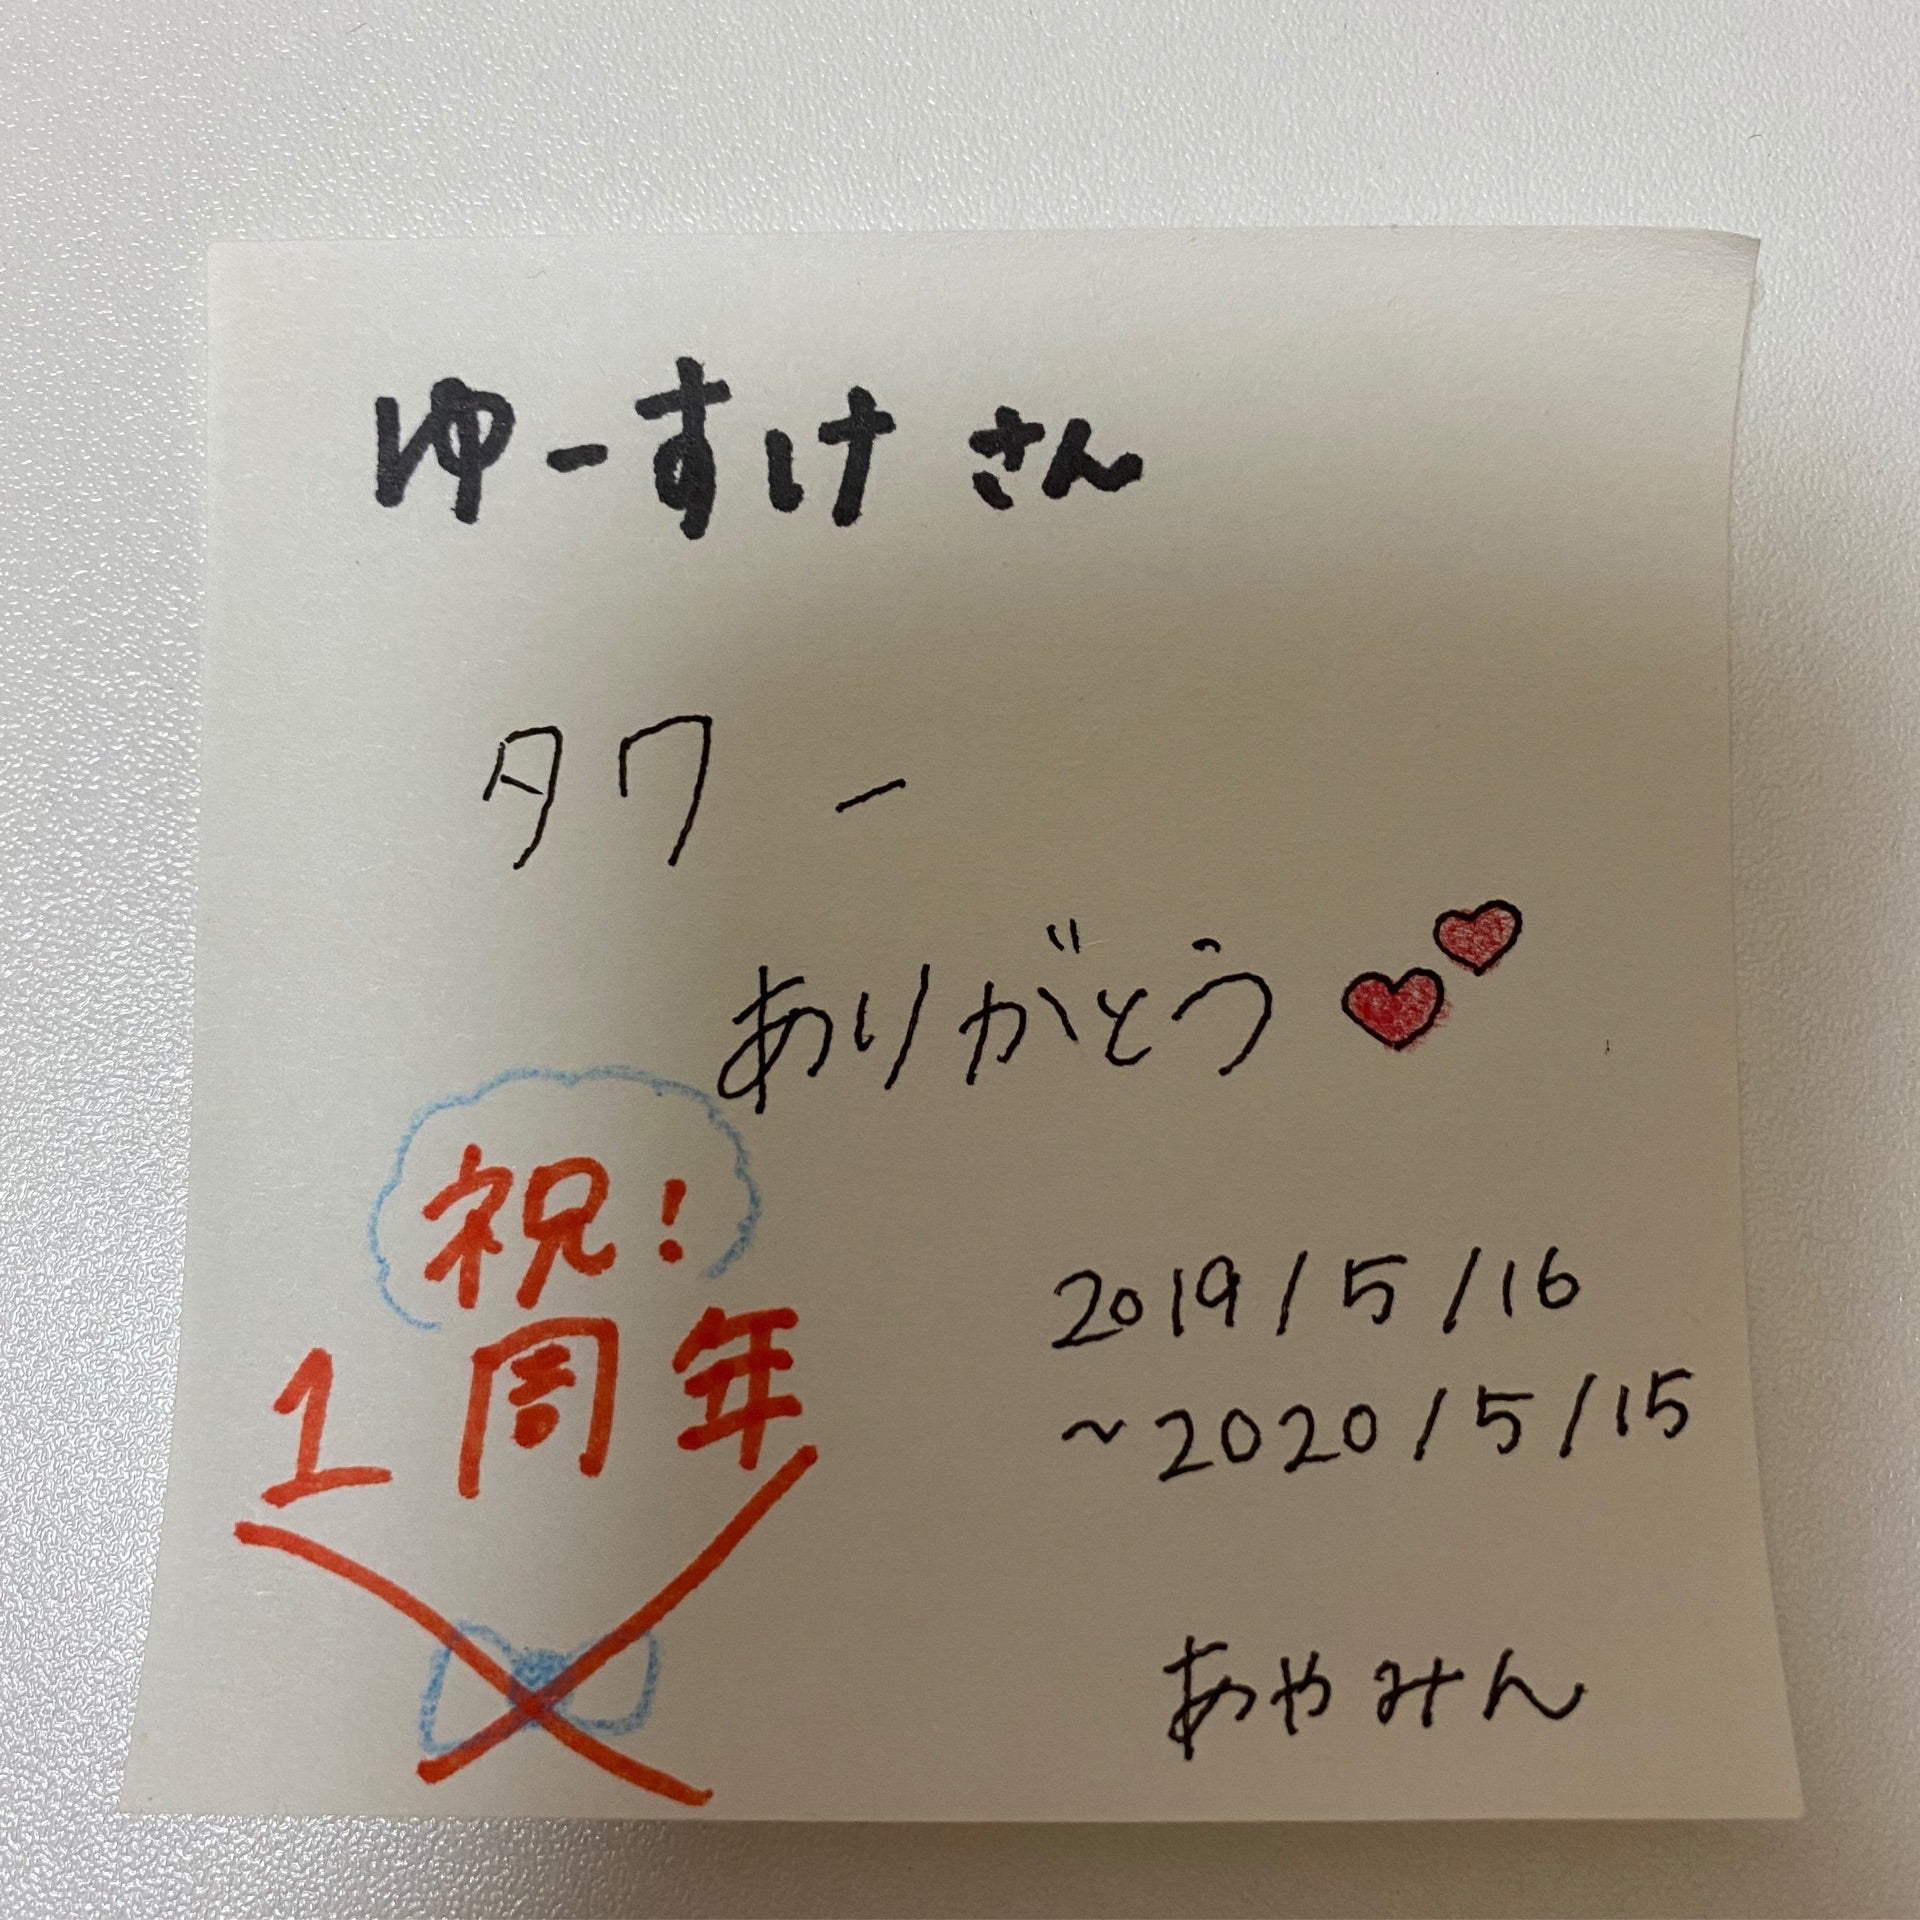 ゆーすけさん
タワー
ありがとう
祝!
1周年
2019/5/16
~2020/5/15
あやみん